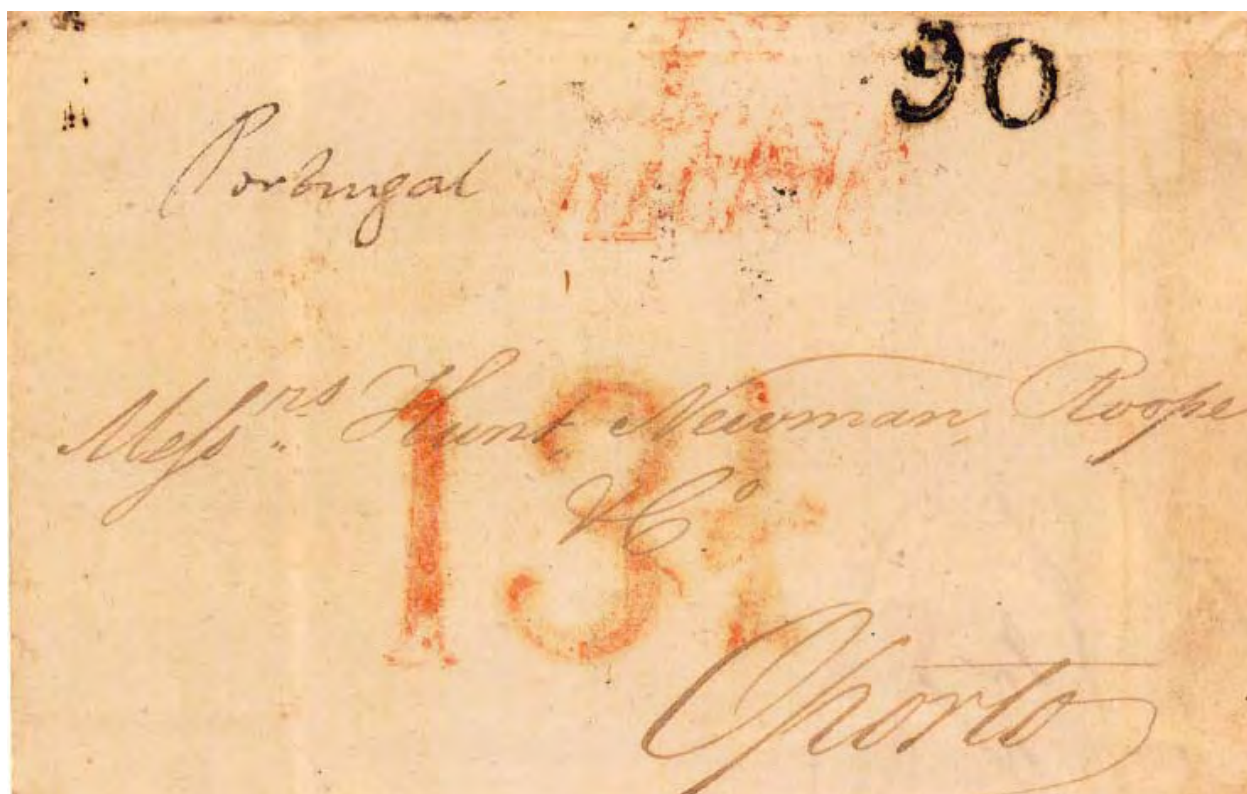 90
Portugal
Messrs Hunt Newman, Roope
& Co
13
Oporto